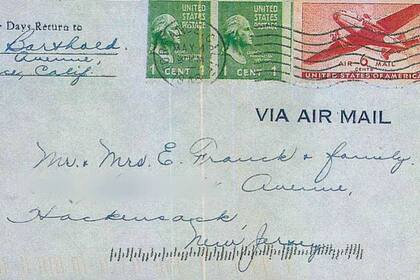 Days Return to
Barthold
Avenue,
Calif.
UNITED STATES
POSTAGE
1 CENT 1
UNITED STATES
POSTAGE
1 CENT 1
AIR 6 MAIL
CENTS
UNITED STATES OF AMERICA
MAY
VIA AIR MAIL
Mr. & Mrs. E. Franck & family.
Avenue,
Hackensack,
New Jersey